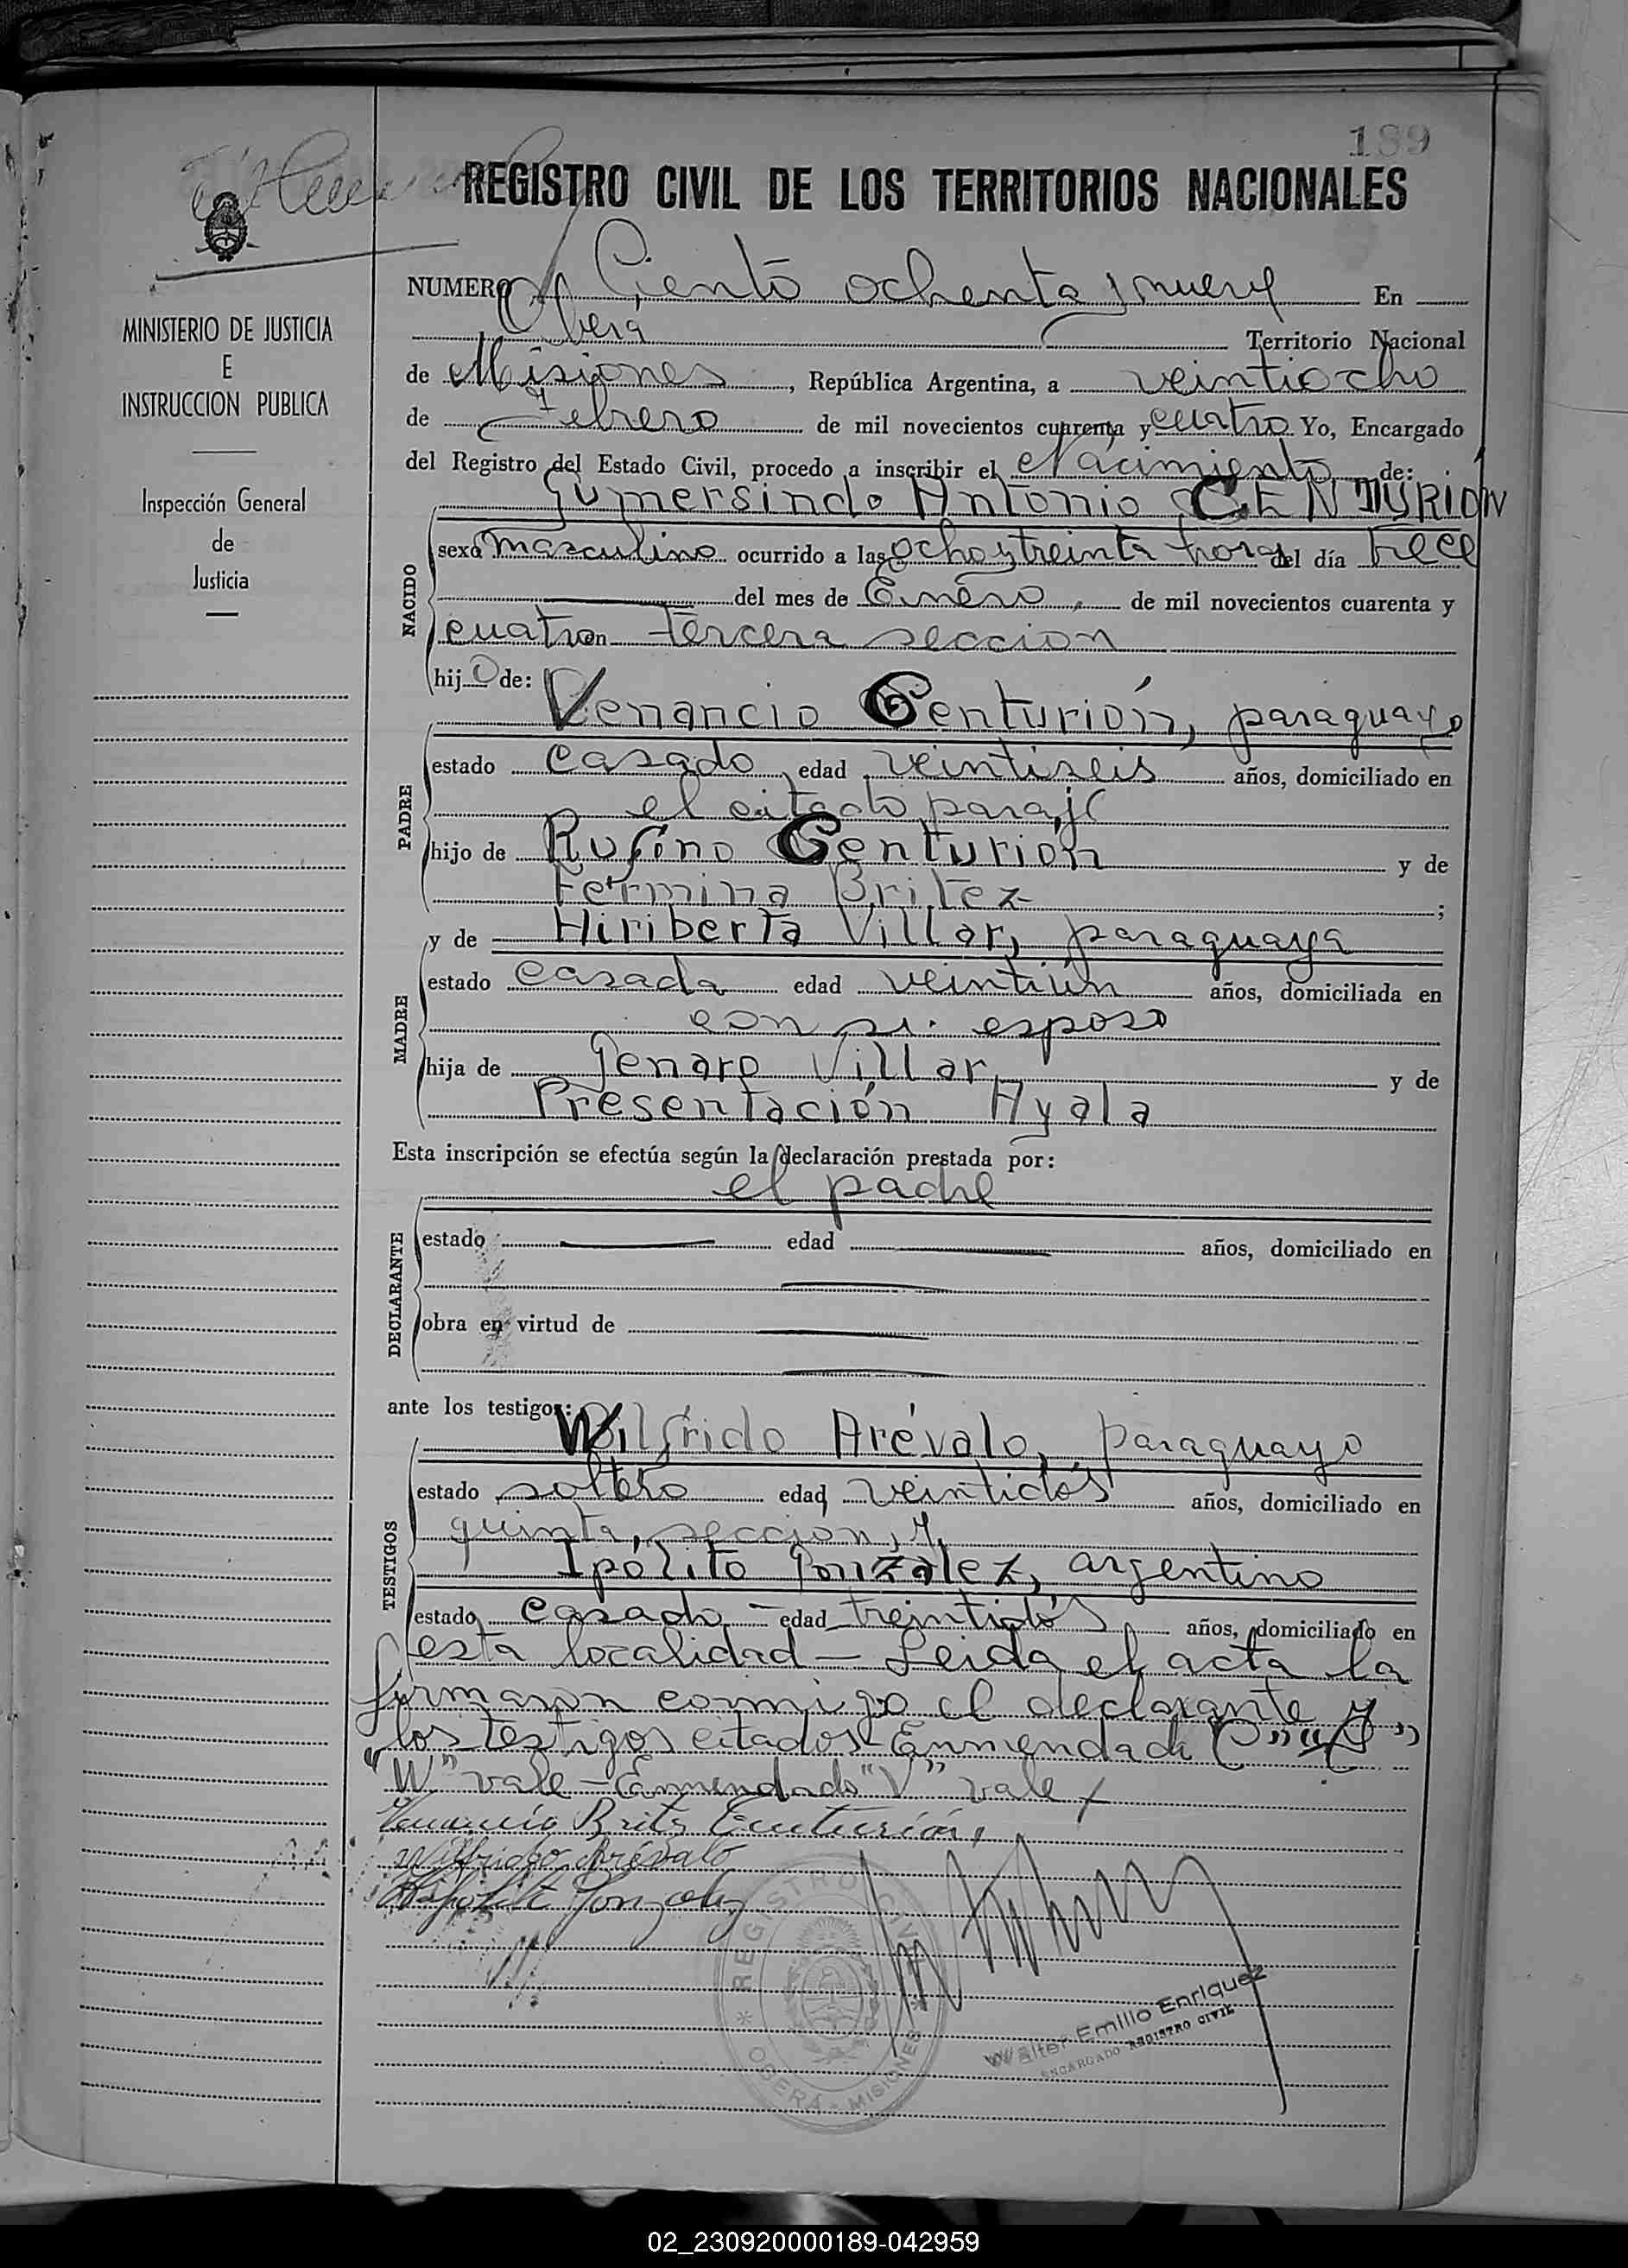 189
REGISTRO CIVIL DE LOS TERRITORIOS NACIONALES
MINISTERIO DE JUSTICIA
E
INSTRUCCION PUBLICA
Inspección General
de
Justicia
NUMERO Ciento ochenta y nueve En
Oberá Territorio Nacional
de Misiones, República Argentina, a veintiocho
de Febrero de mil novecientos cuarenta y cuatro Yo, Encargado
del Registro del Estado Civil, procedo a inscribir el Nacimiento de:
Gumersindo Antonio CENTURION
NACIDO
sexo masculino ocurrido a las ocho y treinta horas del día trece
del mes de Enero, de mil novecientos cuarenta y
cuatro en tercera seccion
hijo de:
Venancio Centurión, paraguayo
PADRE
estado casado, edad veintiseis años, domiciliado en
el citado paraje
hijo de Rufino Centurion y de
Fermina Britez ;
y de Hiriberta Villar, paraguaya
MADRE
estado casada edad veintiún años, domiciliada en
con su esposo
hija de Genaro Villar y de
Presentación Ayala
Esta inscripción se efectúa según la declaración prestada por:
el padre
DECLARANTE
estado edad años, domiciliado en
obra en virtud de
ante los testigos:
Wilfrido Arévalo, paraguayo
TESTIGOS
estado soltero edad veintidós años, domiciliado en
quinta seccion, y
Ipólito González, argentino
estado casado - edad treintidós años, domiciliado en
esta localidad - Leida el acta la
firmaron conmigo el declarante y
los testigos citados - Enmendado "C" "C"
"W" vale - Enmendado "V" vale
Venancio Britz Centurión,
Wilfrido Arévalo
Hipólito Gonzalez
REGISTRO CIVIL
* OBERÁ - MISIONES *
Walter Emilio Enriquez
ENCARGADO REGISTRO CIVIL
02_230920000189-042959